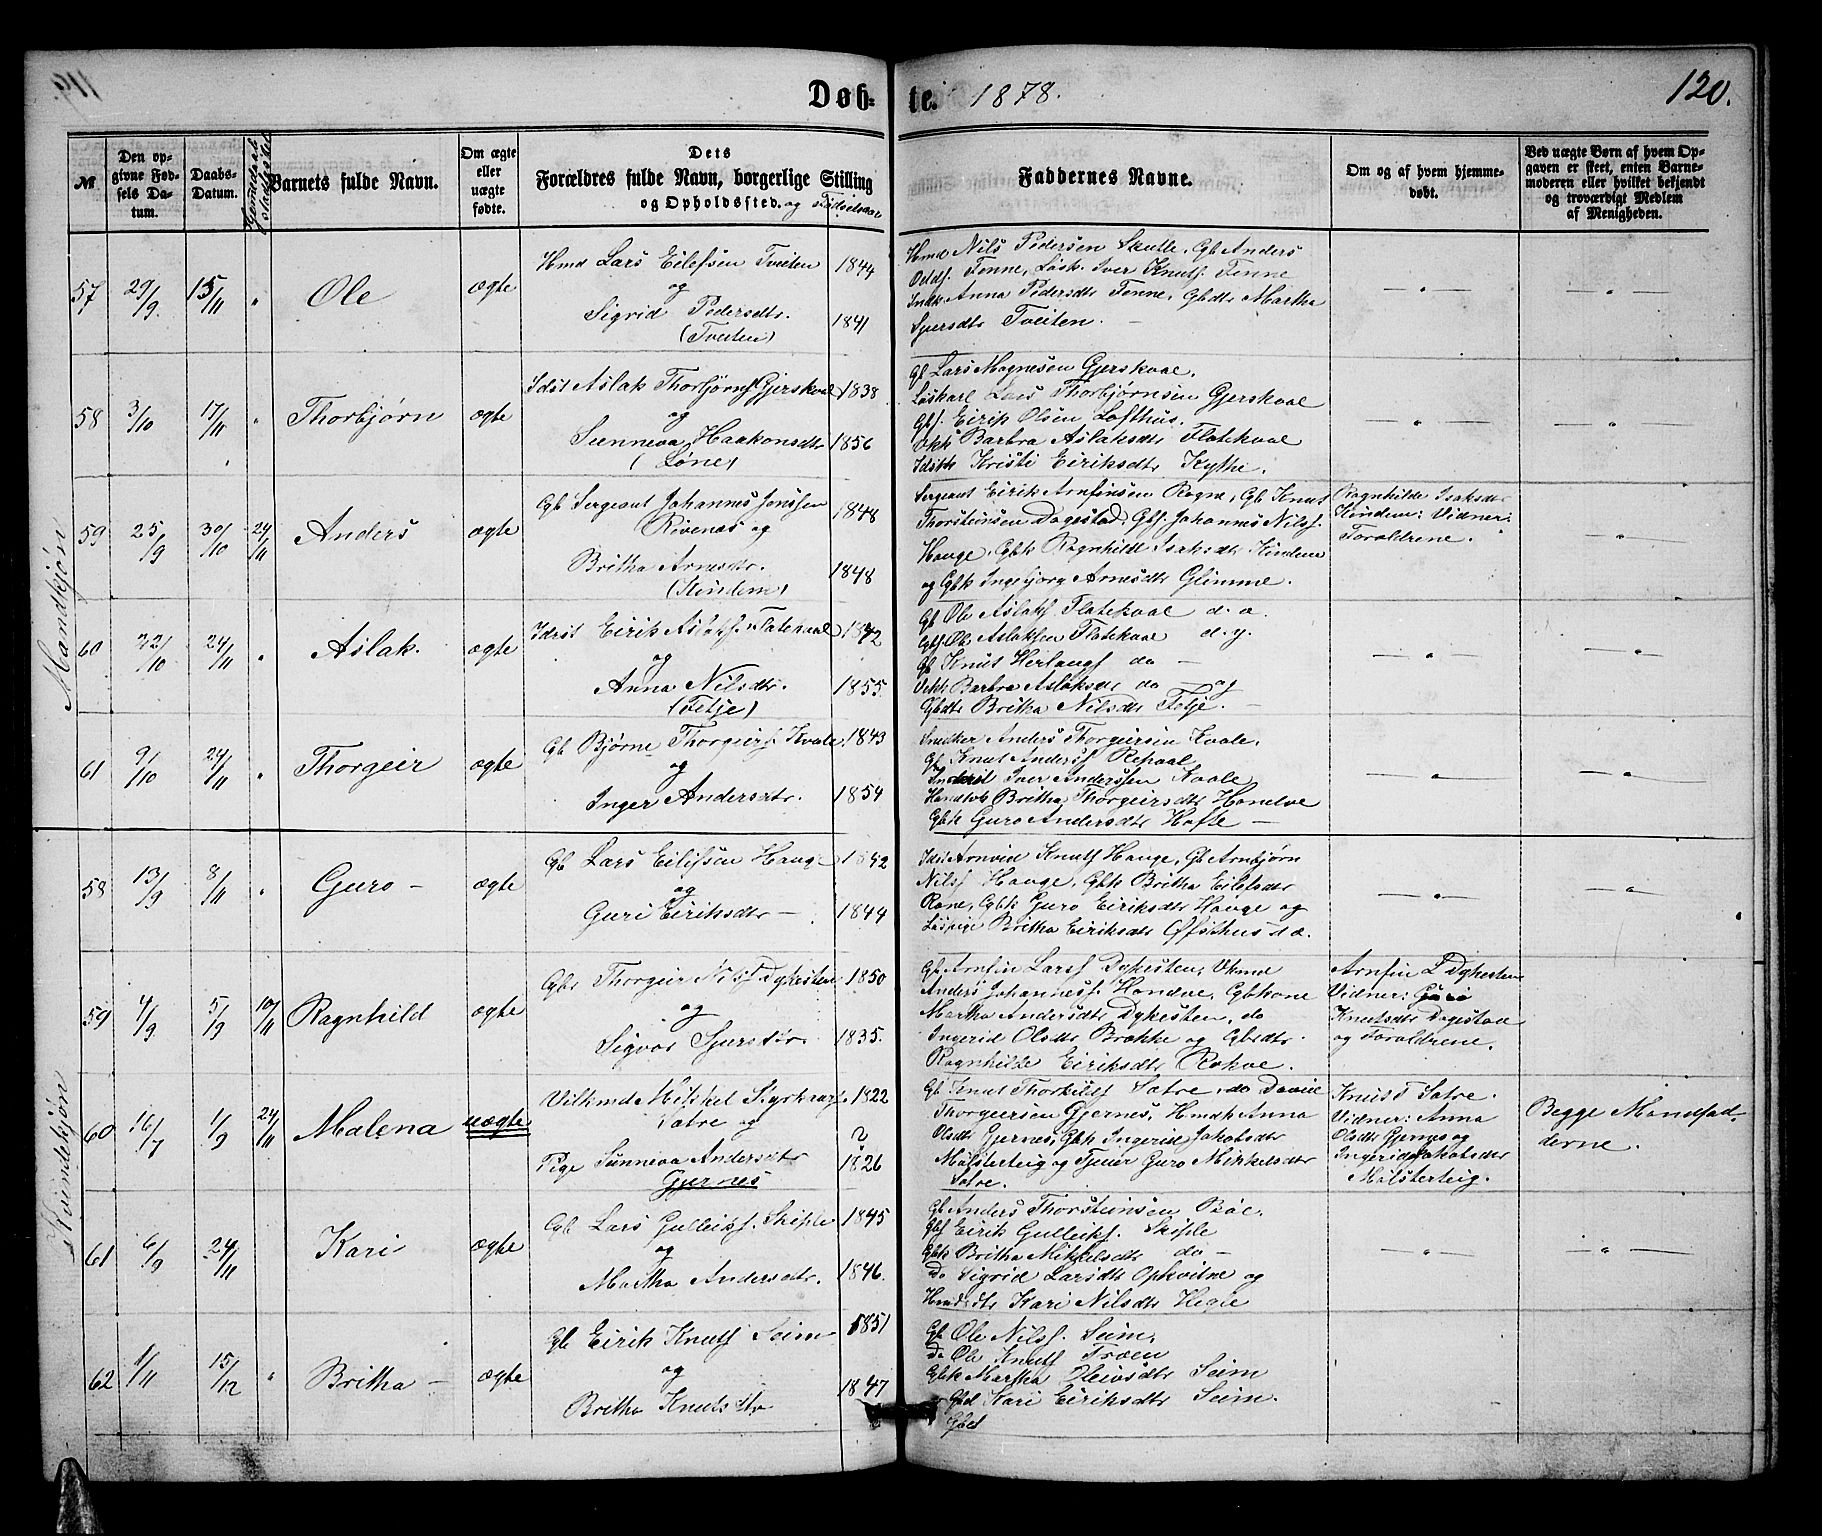 119.
Døb-
te.
1878.
120.
№
Den op-
givne Fød-
sels Da-
tum.
Daabs-
Datum.
Barnets fulde Navn.
Om ægte
eller
uægte
fødte.
Dets
Forældres fulde Navn, borgerlige Stilling
og Opholdssted. og Fødselsaar
Faddernes Navne.
Om og af hvem hjemme-
døbt.
Ved uægte Børn af hvem Op-
gaven er skeet, enten Barne-
moderen eller hvilket bekjendt
og troværdigt Medlem
af Menigheden.
Mandkjøn
57 29/9. 15/11 " Ole ægte
Hmd Lars Eilefsen Tveiten 1844
og
Sigrid Pedersdtr. 1841
(Tveiten)
Hmd Nils Pedersen Skutle, Gb Anders
Oddsf. Fenne, Løsk. Iver Knutsf. Fenne
Indk Anna Pedersdtr Fenne, Gbdtr Martha
Sjursdtr Tveiten. —
— " —
— " —
58 3/10 17/11 " Thorbjørn ægte
Idst Aslak Thorbjørnsf Gjerskval 1838
og
Sunneva Haakonsdtr 1856
(Løne)
Gb Lars Magnesen Gjerskval,
Løskarl Lars Thorbjørnsen Gjerskval
Gbf. Eirik Olsen Lofthus.
Barbra Aslaksdtr Flatekval
Kristi Eiriksdtr Kythe.
— " —
— " —
59 25/9 30/10 24/11 Anders ægte
Gb Sergeant Johannes Jonssen 1848
Rivenæs og
Britha Arnesdtr. 1848
(Kindem)
Sergeant Eirik Arnfinsen Rogne, Gb Knut
Thorsteinsen Dagestad, Gbf. Johannes Nilsf.
Hauge, Gbk Ragnhild Isaksdtr Kindem
og Gbk Ingebjørg Arnesdtr Glimme.
Ragnhilde Isaksdtr
Kindem: Vidner:
Forældrene.
— " —
60 22/10 24/11 " Aslak. ægte
Idst Eirik Aslaksf. Flatekval 1842
og
Anna Nilsdtr. 1855
(Fetje)
Gb Ole Aslaksf Flatekval d. æ.
Gbf Ole Aslaksen Flatekval d. y.
Gb Knut Herlaugsf do —
Barbra Aslaksdtr do — og
Gbdtr Britha Nilsdtr Fetje. —
— " —
— " —
61 9/10 24/11 " Thorgeir ægte
Gb Bjørne Thorgeirsf. Kvale. 1843
og
Inger Andersdtr. 1854
Snedker Anders Thorgeirsen Kvale.
Gb Knut Andersf Repaal
Iver Anderssen Kvale
Britha Thorgeirsdtr Hondve
Gbk Guro Andersdtr Hæfte —
— " —
— " —
Kvindekjøn
58 13/9 8/11 " Guro — ægte
Gb Lars Eilifsen Hauge 1842
og
Guri Eiriksdtr — 1844
Idst Arnvid Knutsf Hauge, Gb Arnbjørn
Nilsf Hauge, Gbk Britha Eilefsdtr
Rone, Gbk Guro Eiriksdtr Hauge og
Løspige Britha Eiriksdtr Øfsthus d. æ.
— " —
— " —
59 4/9 5/9 10/11 Ragnhild ægte
Gbr Thorgeir Nilsf Dykesten 1850
og
Sigvor Sjursdtr 1835.
Gb Arnfin Larsf Dykesten, Ukmd
Anders Johannesf. Hondve, Gbkone
Martha Andersdtr Dykesten, do
Ingerid Olsdtr Brække og Gbdtr.
Ragnhilde Eiriksdtr Rokve.
Arnfin L Dykesten
Vidner: Guri
Knutsdtr Dagestad
og Forældrene.
60 16/7 1/9 24/11 Malena uægte
Vilkmd Mikkel Styrkarsf. 1822
Sætre og
Pige Sunneva Andersdtr 1826
Gjernes
Gb Knut Thorkildsf Sætre, do David
Thorgeirsen Gjernes, Hmdk Anna
Olsdtr Gjernes, Gbk Ingerid Jakobsdtr
Mølsterteig og Tjener Guro Mikkelsdtr
Sætre.
Knut T Sætre.
Vidner: Anna
Olsdtr Gjernes og
Ingerid Jakobsdtr
Mølsterteig.
Begge Mandfad-
derne.
61 6/9 24/11 Kari ægte
Gb Lars Gulleiksf. Skiple 1845
og
Martha Andersdtr. 1846.
Gb Anders Thorsteinsen Bøe.
Gbf Eirik Gulleiksf. Skiple
Gbk Britha Mikkelsdtr do —
Do Sigrid Larsdtr Opkvitne og
Kari Nilsdtr Hegle
— " —
— " —
62 1/11 15/12 " Britha — ægte
Gb Eirik Knutsf Seim 1851
og
Britha Knutsdtr 1847
Gb Ole Nilsf. Seim,
Do Ole Knutsf Træen
Gbk Martha Seim
Gbd Kari Eiriksdtr Seim.